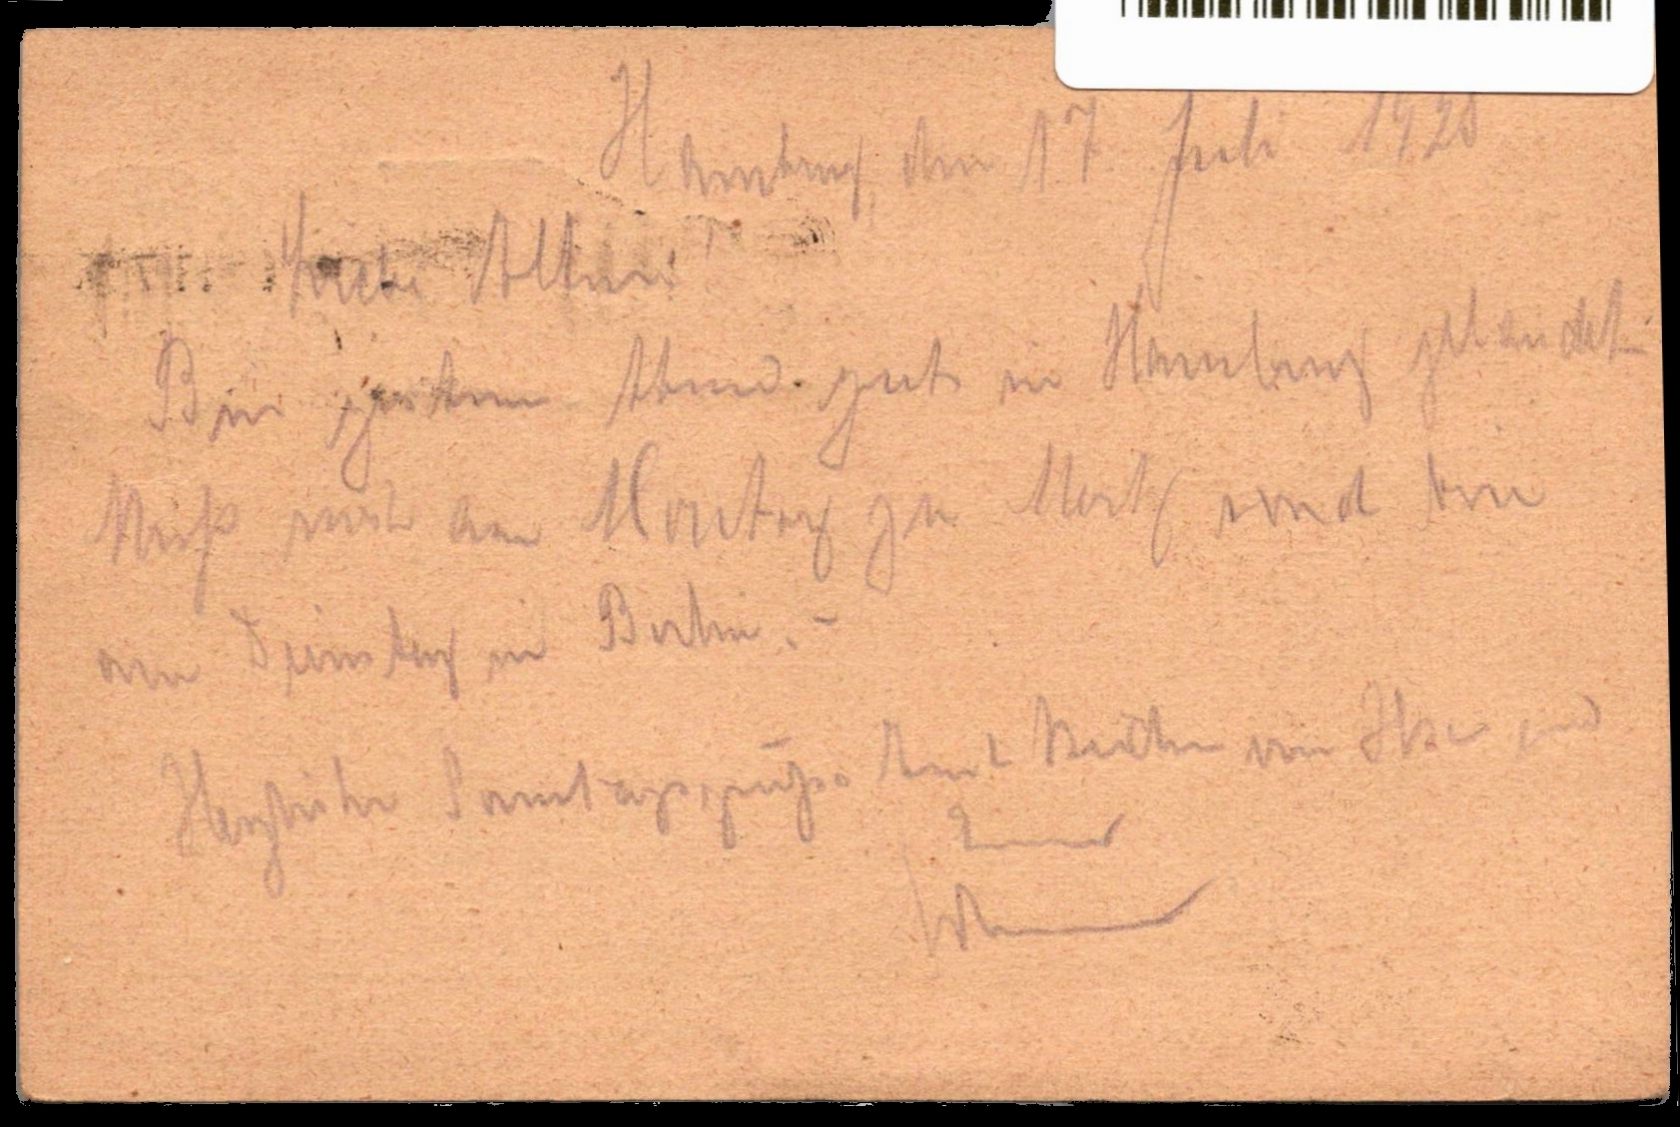 Hamburg, den 17. Juli 1920
Liebe Eltern!
Bin gestern Abend gut in Hamburg gelandet.
Muß noch am Montag zu und bin
am Dienstag in Berlin. –
Herzliche Sonntagsgrüße von Ilse und